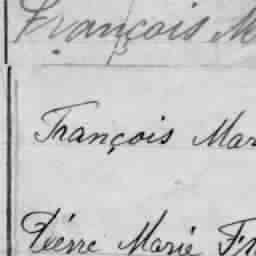 François M
François Mar
Piérre Marie Fr